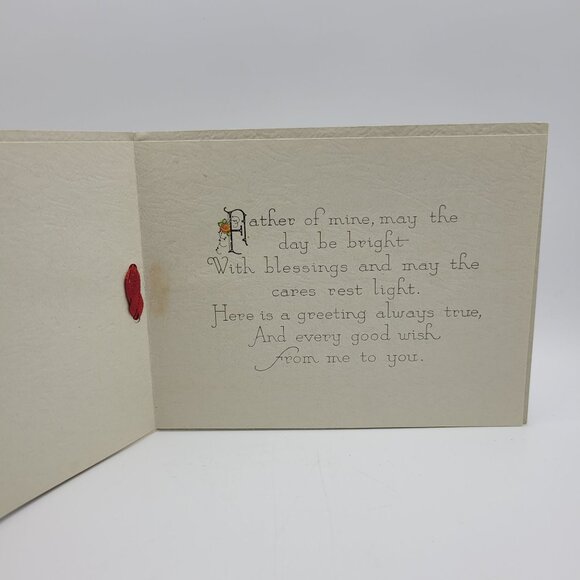 Father of mine, may the
day be bright
With blessings and may the
cares rest light.
Here is a greeting always true,
And every good wish
from me to you.